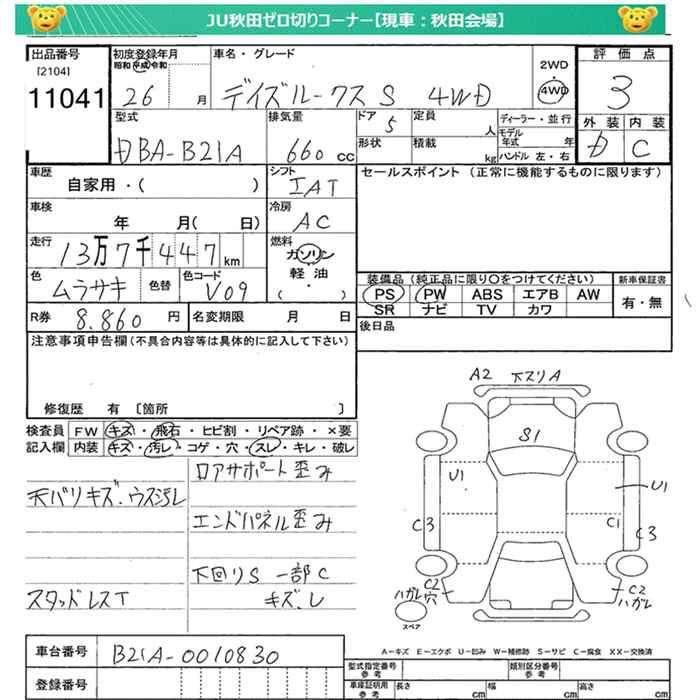 JU秋田ゼロ切りコーナー【現車：秋田会場】
出品番号
[2104]
11041
初度登録年月
昭和 平成 令和
26 月
車名・グレード
デイズルークス S 4WD
2WD
・
4WD
評価点
3
外装 内装
D C
型式
DBA-B21A
排気量
660 cc
ドア
5
定員
人
形状
積載
kg
ディーラー・並行
モデル
年式 年
ハンドル 左・右
車歴
自家用・( )
シフト
IAT
車検
年 月( 日)
冷房
AC
走行
13万7千447 km
燃料
ガソリン
軽油
( ・ )
色
ムラサキ
色替
色コード
V09
R券
8.860 円
名変期限 月 日
セールスポイント (正常に機能するものに限ります)
装備品 (純正品に限り〇をつけてください)
PS PW ABS エアB AW
SR ナビ TV カワ
新車保証書
有・無
後日品
注意事項申告欄(不具合内容等は具体的に記入して下さい)
修復歴 有 〔箇所 〕
検査員
記入欄
FW キズ・飛石・ヒビ割・リペア跡・×要
内装 キズ・汚レ・コゲ・穴・スレ・キレ・破レ
ロアサポート歪み
天バリキズ.ウス汚レ
エンドパネル歪み
下回りS 一部C
スタッドレスT
キズ.レ
A2 下スリA
S1
U1
U1
C3
C1
C3
C2
ハガレ穴
C2
ハガレ
スペア
A-キズ E-エクボ U-凹み W-補修跡 S-サビ C-腐食 XX-交換済
車台番号
B21A-0010830
登録番号
型式指定番号
参考
類別区分番号
参考
車庫証明用
参考
長さ cm
幅 cm
高さ cm